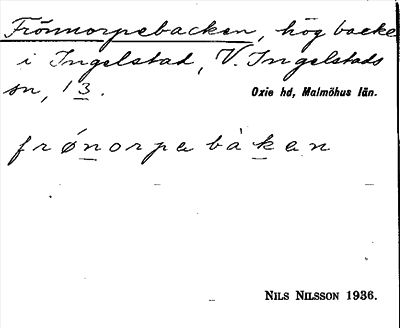 Frönnorpebacken, hög backe
i Ingelstad, V. Ingelstads
sn, 13.
Oxie hd, Malmöhus län.
frønorpa båkan
NILS NILSSON 1936.